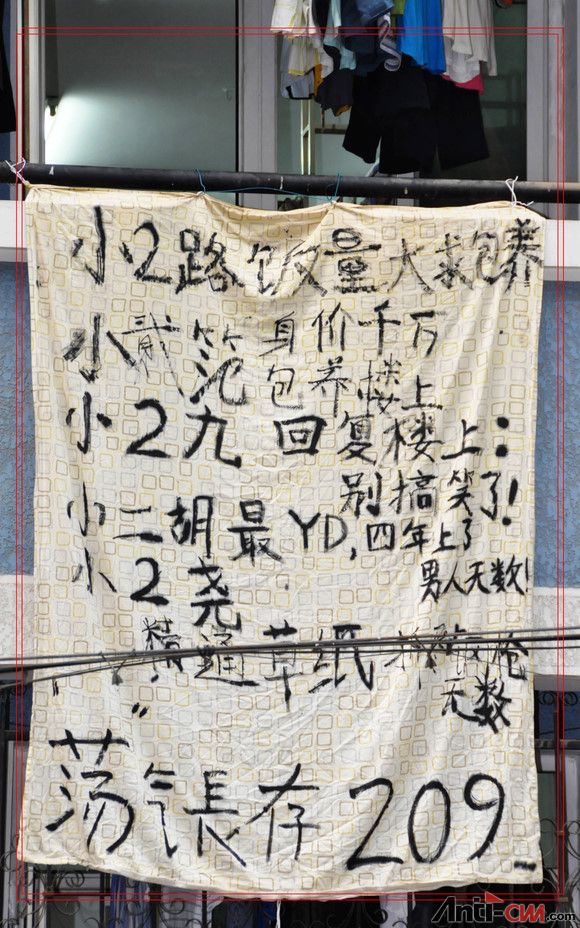 小2路饭量大求包养
小贰范身价千万
包养楼上
小2九回复楼上:
别搞笑了!
小二胡最YD,四年上了
男人无数!
小2尧
精通草纸
无数
荡气長存209
Anti-CM.com